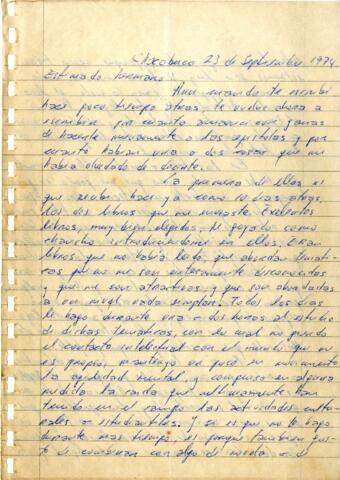 Chacabuco 23 de Septiembre 1974
Estimado hermano:
Aun cuando te escribí
hace poco tiempo atras, te vuelvo ahora a
escribir por cuanto amanecí con ganas
de hacerte nuevamente a las epistolas y por
cuanto habían una o dos cosas que me
había olvidado de decirte.
La primera de ellas es
que recibí, hace ya como 10 dias atras,
los dos libros que me enviaste. Excelentes
libros, muy bien elegidos, he gozado como
chancho introduciendome en ellos. Eran
libros que no había leído, que abordan temáti-
cas que no me son enteramente desconocidas
y que me son atractivas, y que son abordadas
a un nivel nada simplón. Todos los dias
le hago durante una o dos horas al estudio
de dichas temáticas, con lo cual no pierdo
el contacto intelectual con el mundo que me
es propio, mantengo un poco en movimiento
la agilidad mental, y compenso en alguna
medida la caida que ultimamente han
tenido en el campo las actividades cultu-
rales o estudiantiles. Y si es que no le hago
durante mas tiempo, es porque tambien gus-
to de combinar con algo de novela o de